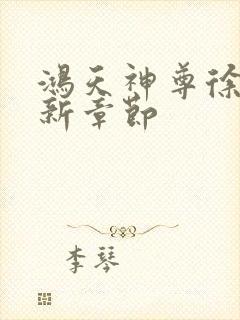 鴻天神尊徐
新章節
李琴